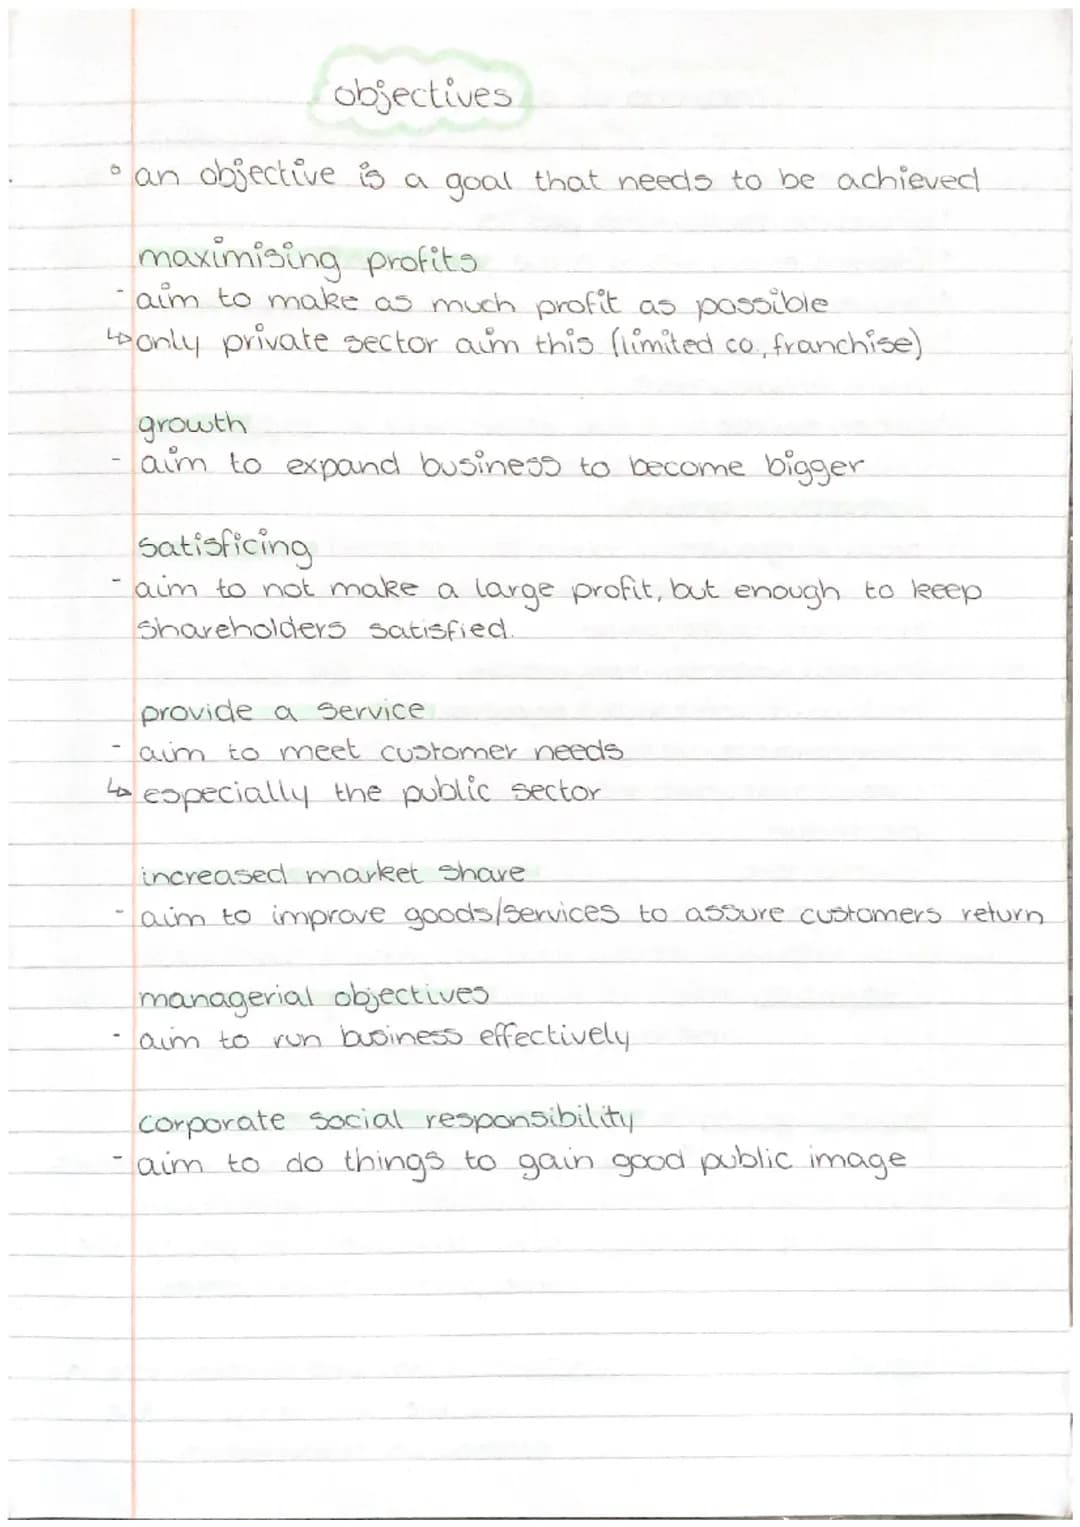 objectives
° an objective is a goal that needs to be achieved
maximising profits
- aim to make as much profit as possible
↳ only private sector aim this (limited co., franchise)
growth
- aim to expand business to become bigger
satisficing
- aim to not make a large profit, but enough to keep
shareholders satisfied.
provide a service
- aim to meet customer needs
↳ especially the public sector
increased market share
- aim to improve goods/services to assure customers return
managerial objectives
- aim to run business effectively
corporate social responsibility
- aim to do things to gain good public image